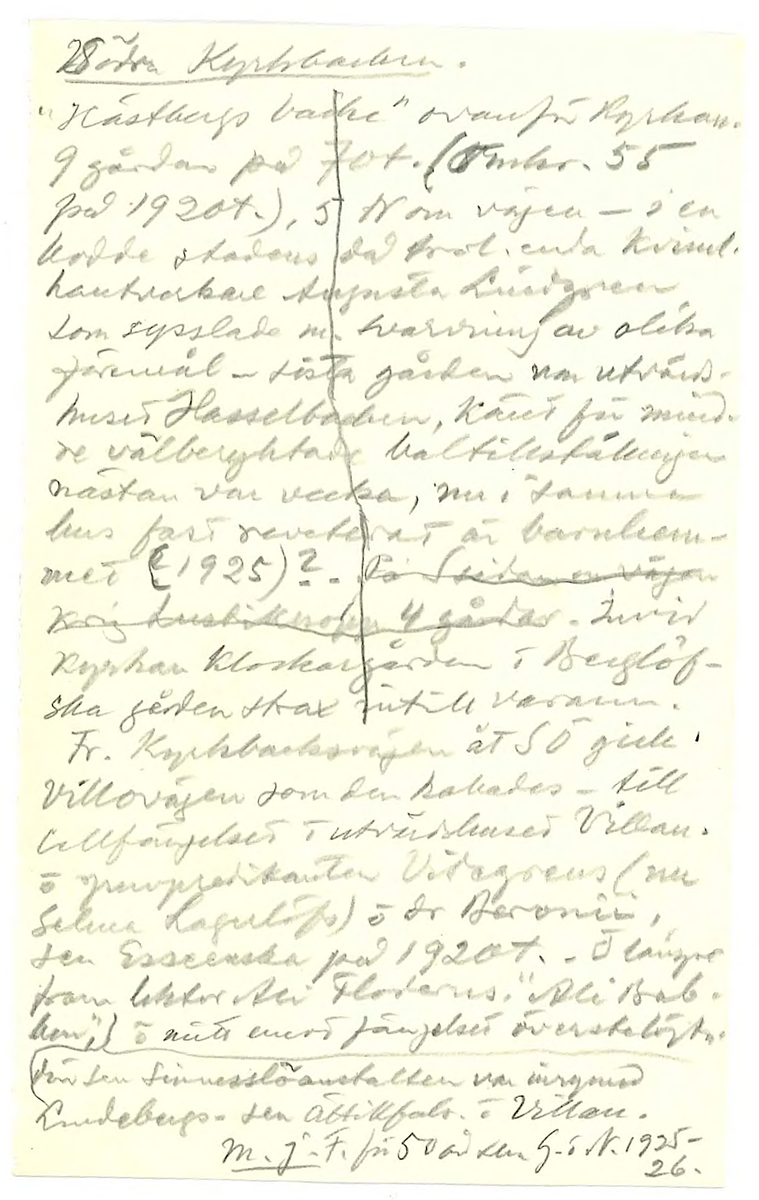 Södra Kyrkbacken.
"Hästbergs backe" ovanför Kyrkan.
9 gårdar på 70t. (Omkr. 55
på 1920t.), 5 N om vägen – i en
bodde stadens då trol. enda kvinnl.
hantverkare Augusta Lindgren
som sysslade m. svarvning av olika
föremål – sista gården var utvärds-
huset Hasselbacken, känt för mind-
re välberyktade baltillställningar
nästan var vecka, nu i samma
hus fast reveterat är barnhem-
met (1925)?. På Sidan om vägen
kring 4 gårdar. Invid
Kyrkan Klockargården i Berglöf-
ska gården strax intill varann.
Fr. Kyrkbacksvägen åt SÖ gick
Villovägen som den kallades – till
Cellfängelset i utvärdshuset Villan.
o Videgrens (nu
Selma Lagerlöfs) o dr Beronii,
sen Esseenska på 1920t. – o längre
fram lektor Ali Floderus. "Ali Bab-
ben", o mitt emot fängelset
där sen Sinnesslöanstalten var inrymd
Lindebergs – sen i Villan.
M. J. F. för 50 år sen G. o N. 1925-
26.